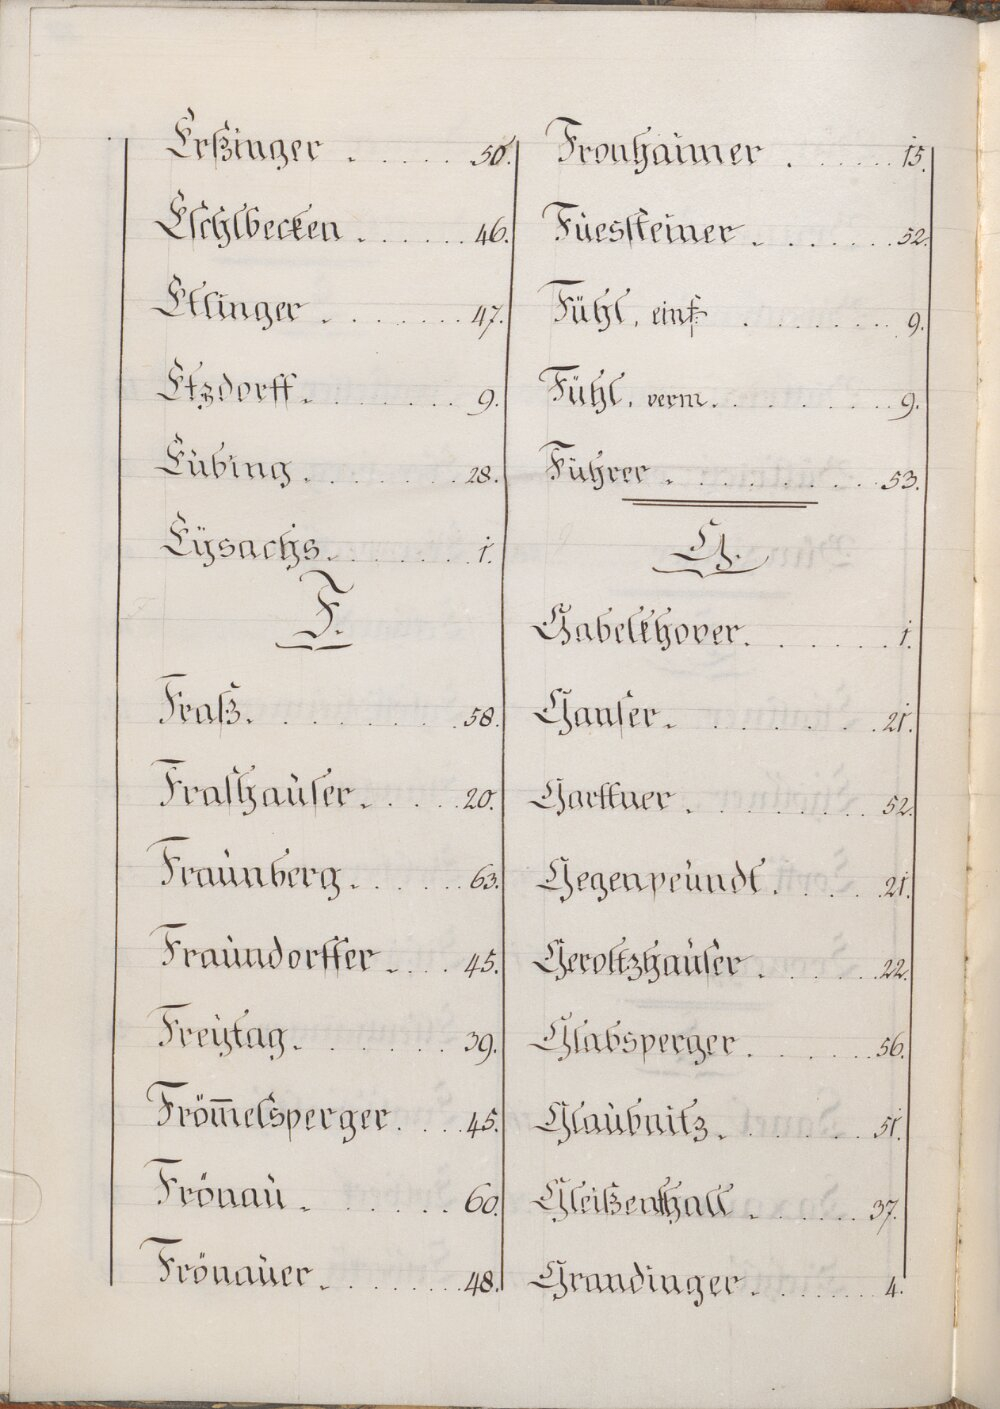 Erßinger . . . . . 50.
Eschlbecken . . . . . . 46.
Etlinger . . . . . . . 47.
Etzdorff . . . . . . . 9.
Eübing . . . . . . . . 28.
Eÿsachs . . . . . . . . 1.
F.
Fraß . . . . . . . . 58.
Frashaùser . . . . . 20.
Fraùnberg . . . . . 63.
Fraùndorffer . . . . 45.
Freÿtag . . . . . . . 39.
Frömelsperger . . . . 45.
Frönaù . . . . . . . 60.
Frönaùer . . . . . . . 48.
Fronhaimer . . . . . . 15.
Füessteiner . . . . . . 52.
Fühl, einf. . . . . . . . 9.
Fühl, verm. . . . . . . . 9.
Führer . . . . . . . . . 53.
G.
Gabelkhover . . . . . . . 1.
Ganser . . . . . . . . 21.
Garttner . . . . . . . . 52.
Gegenpeùndt . . . . . 21.
Geroltzhaùser . . . . . . 22.
Glabsperger . . . . . . 56.
Glaùbnitz . . . . . . . 51.
Gleißenthall . . . . . . 37.
Grandinger . . . . . . . 4.